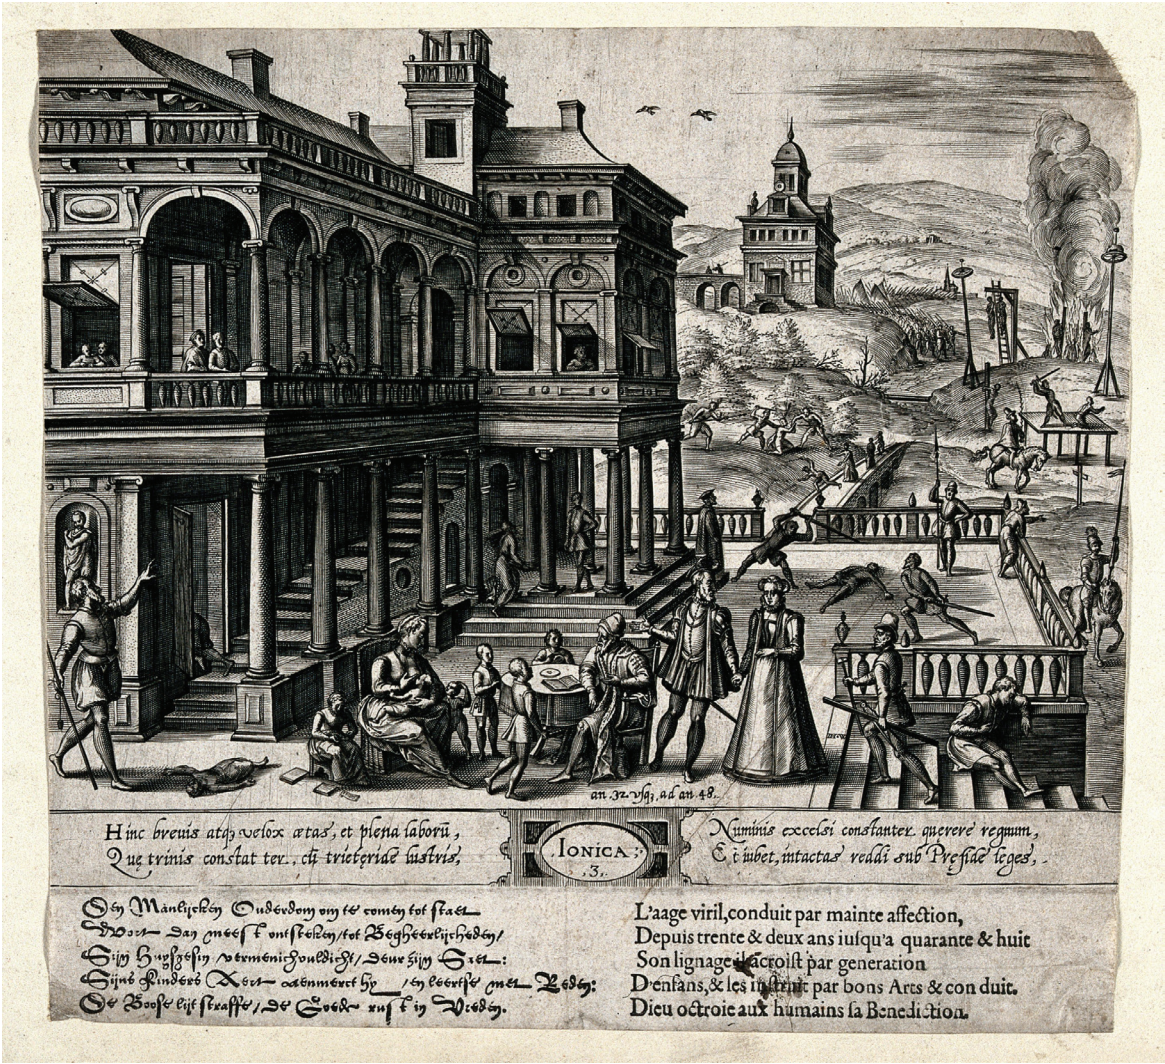 an. 32. vsq, ad an 48.
Hinc breuis atq, velox ætas, et plena laborū,
Quę trinis constat ter, cū trieteride lustris,
IONICA
.3.
Numinis excelsi constanter querere regnum,
Et iubet, intactas reddi sub Pręside leges,
Den Manlijcken Ouderdom om te comen tot staet
Wort dan meest ontsteken/tot Begheerlijcheden/
Sijn Huyszesin vermenichvuldicht/deur zijn Saet:
Sijns Kinders Aert aenmerct hy /en leertse met Reden:
De Boose lijt straffe/de Goede rust in Vreden.
L'aage viril, conduit par mainte affection,
Depuis trente & deux ans iusqu'a quarante & huit
Son lignage acroist par generation
D'enfans, & les instruit par bons Arts & conduit.
Dieu octroie aux humains sa Benediction.